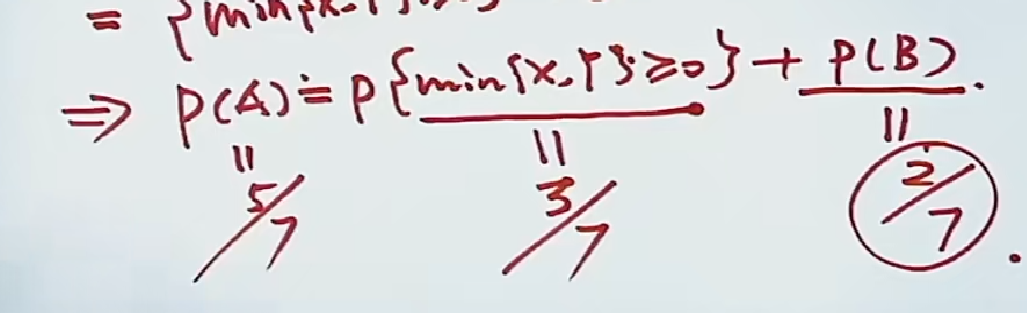 = {min{x,Y
⇒ P(A) = P{min{x,Y}≥0} + P(B).
" 5/7 " 3/7 " 2/7.